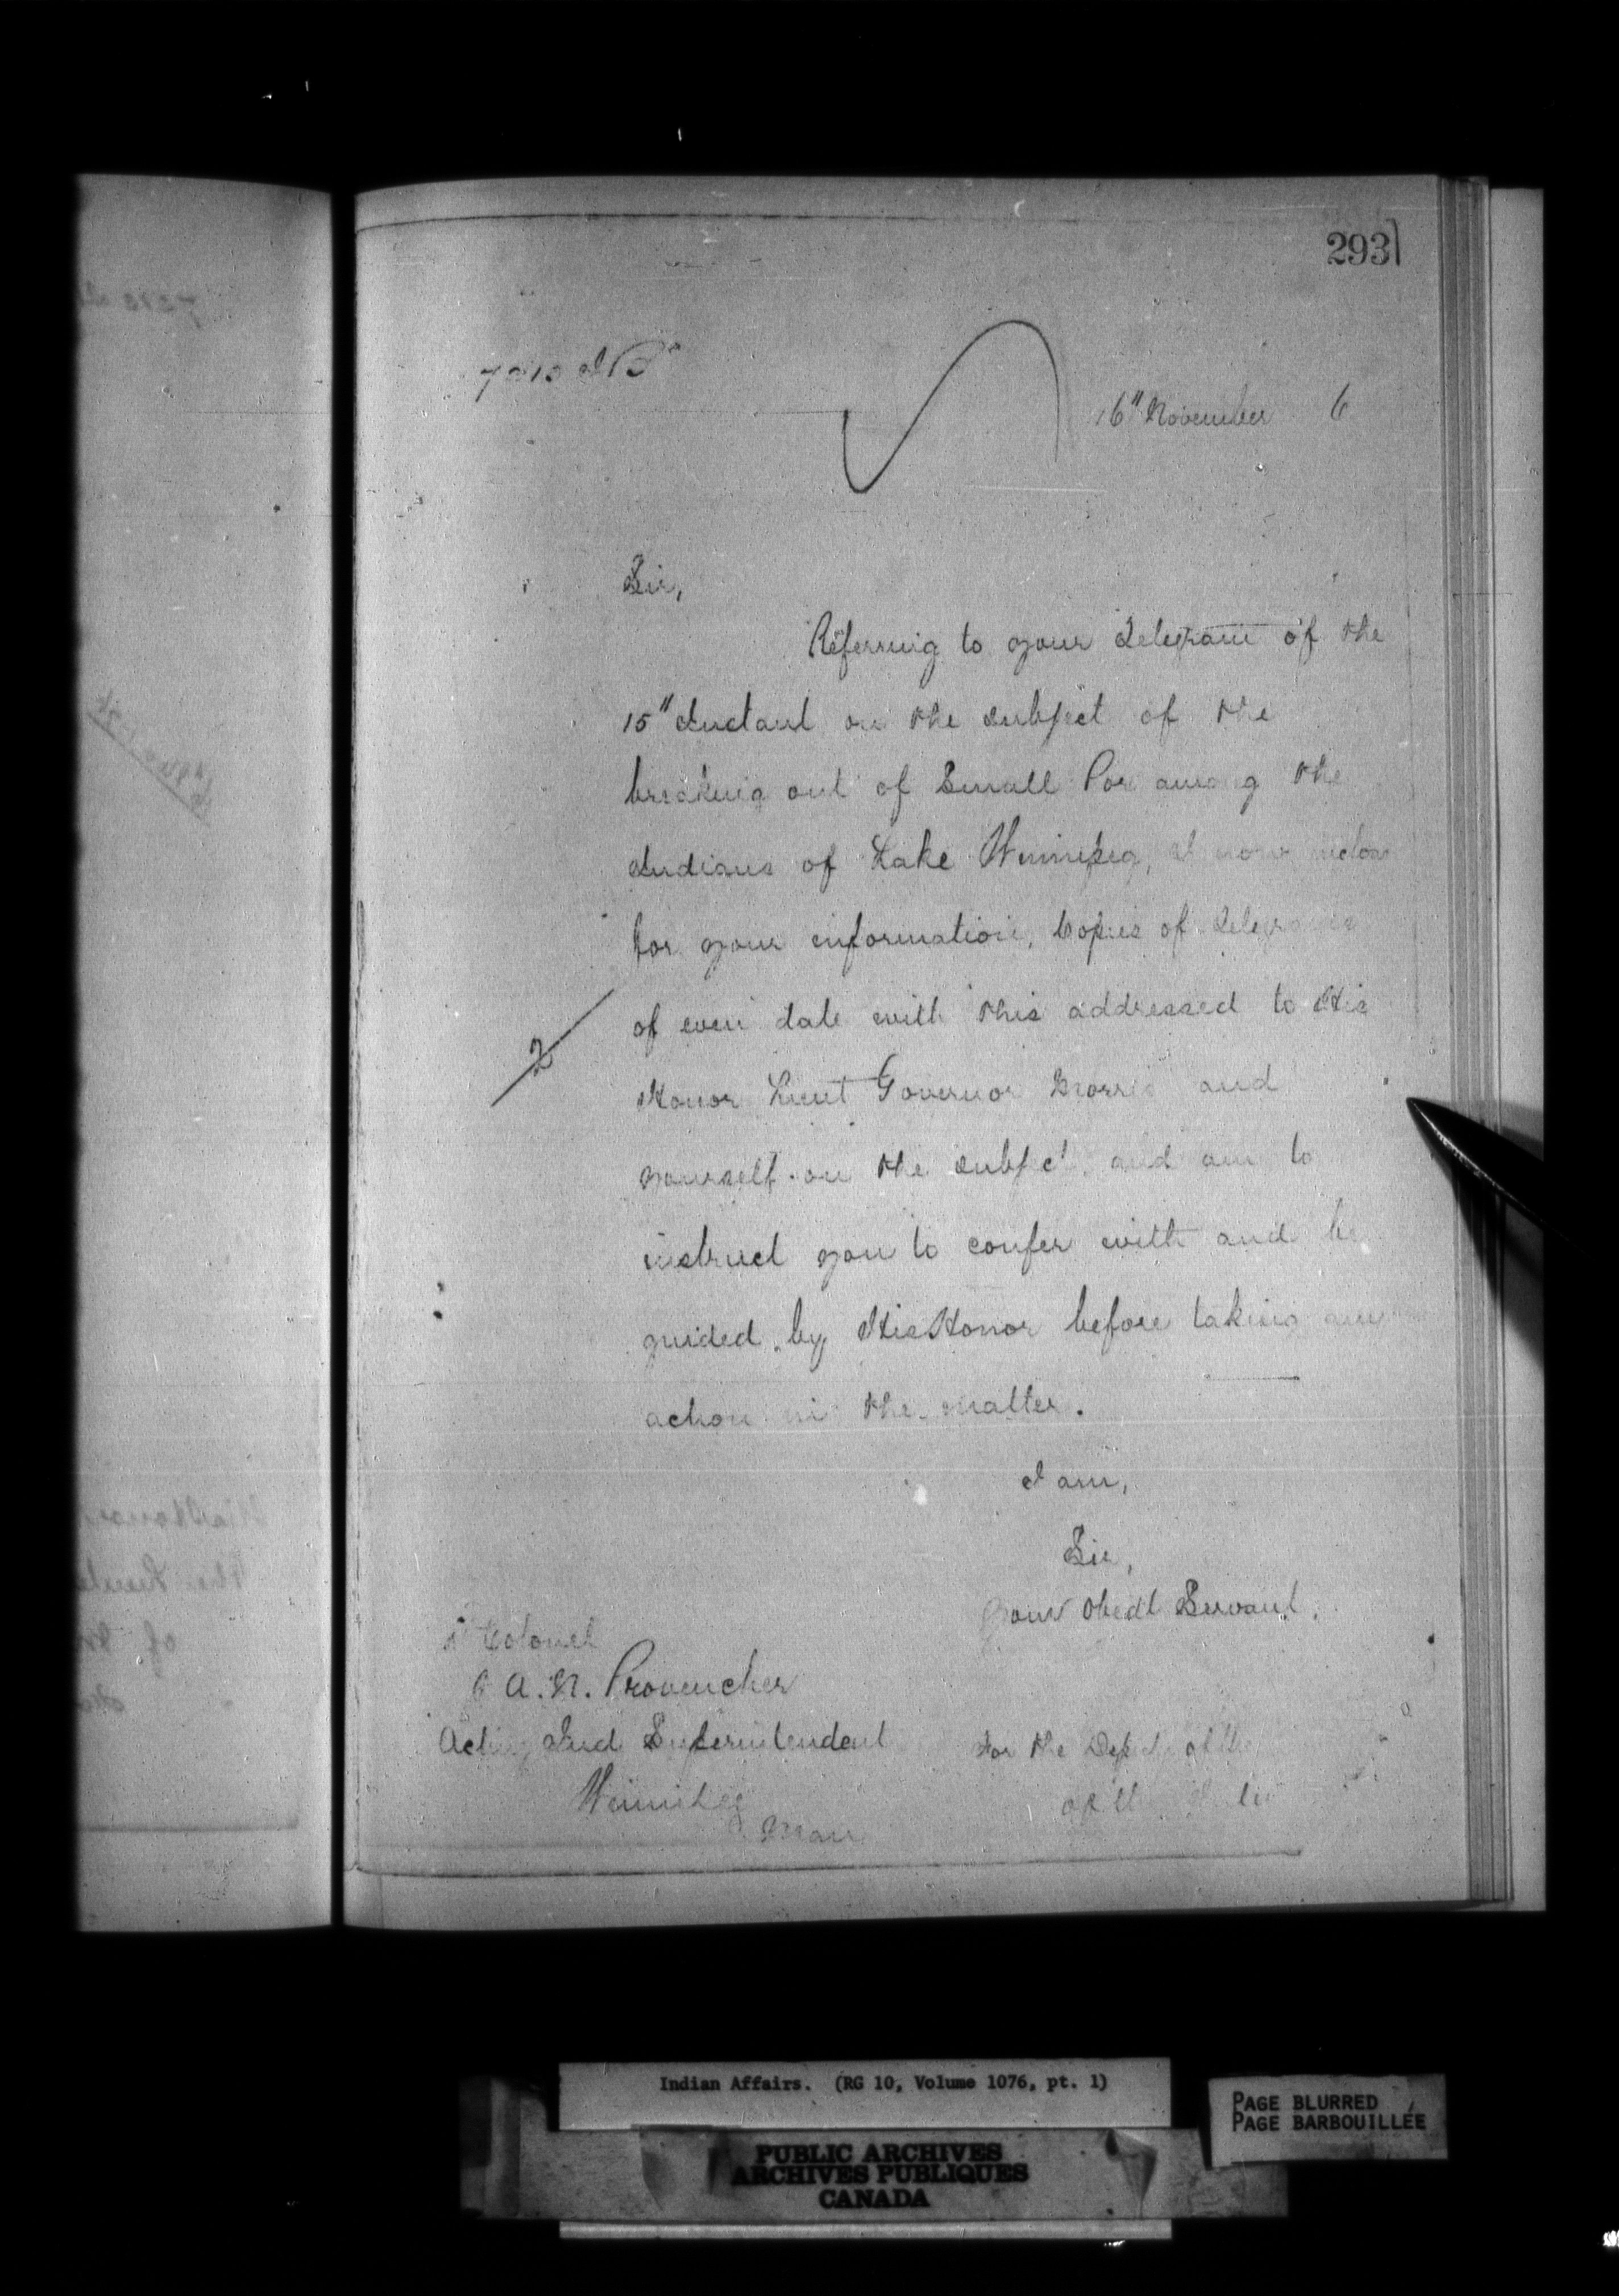 293
16" November 6
Sir,
Referring to your Telegram of the
15" Instant on the subject of the
breaking out of Small Pox among the
Indians of Lake Winnipeg, I now enclose
for your information, Copies of Telegrams
of even date with this addressed to His
2
Honor Lieut Governor Morris and
yourself on the subject, and am to
instruct you to confer with and be
guided by His Honor before taking any
action in the matter.
I am,
Sir,
Your Obedt Servant,
Colonel
A. N. Provencher
Acting Ind Superintendent
Winnipeg
Man
For the Deputy of the
Indian Affairs. (RG 10, Volume 1076, pt. 1)
PAGE BLURRED
PAGE BARBOUILLÉE
PUBLIC ARCHIVES
ARCHIVES PUBLIQUES
CANADA